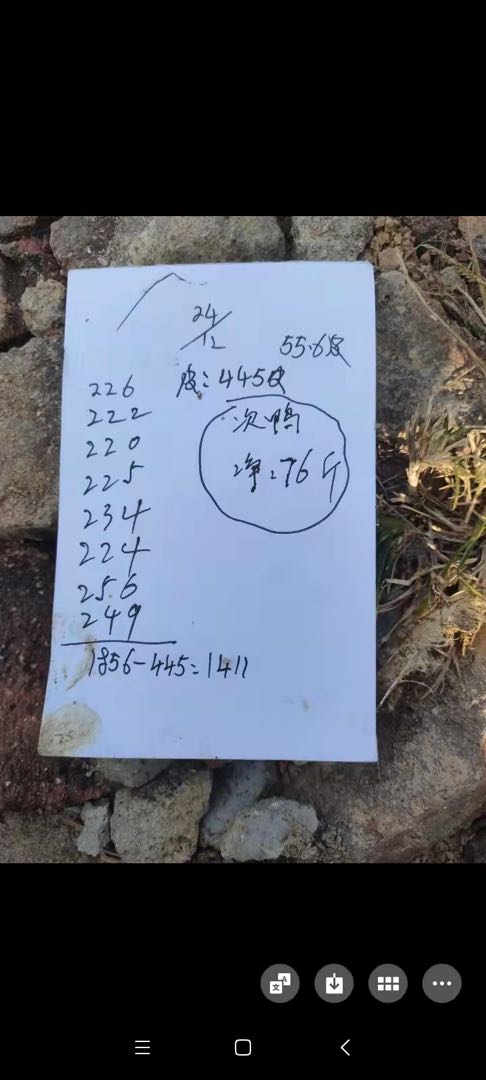 24/12
55.6
皮:445
226
222
220
225
234
224
256
249
次鸭
净:76斤
1856-445=1411